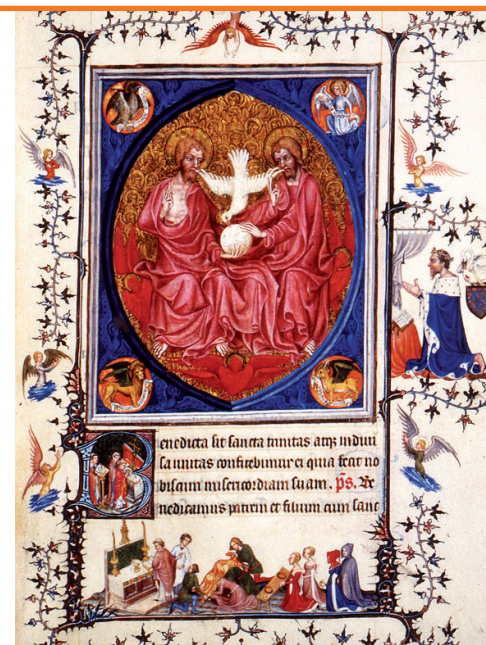 enedicta sit sancta trinitas atqz indiui
sa unitas confitebimur ei quia fecit no
biscum misericordiam suam. ps. Be
nedicamus patrem et filium cum sanc